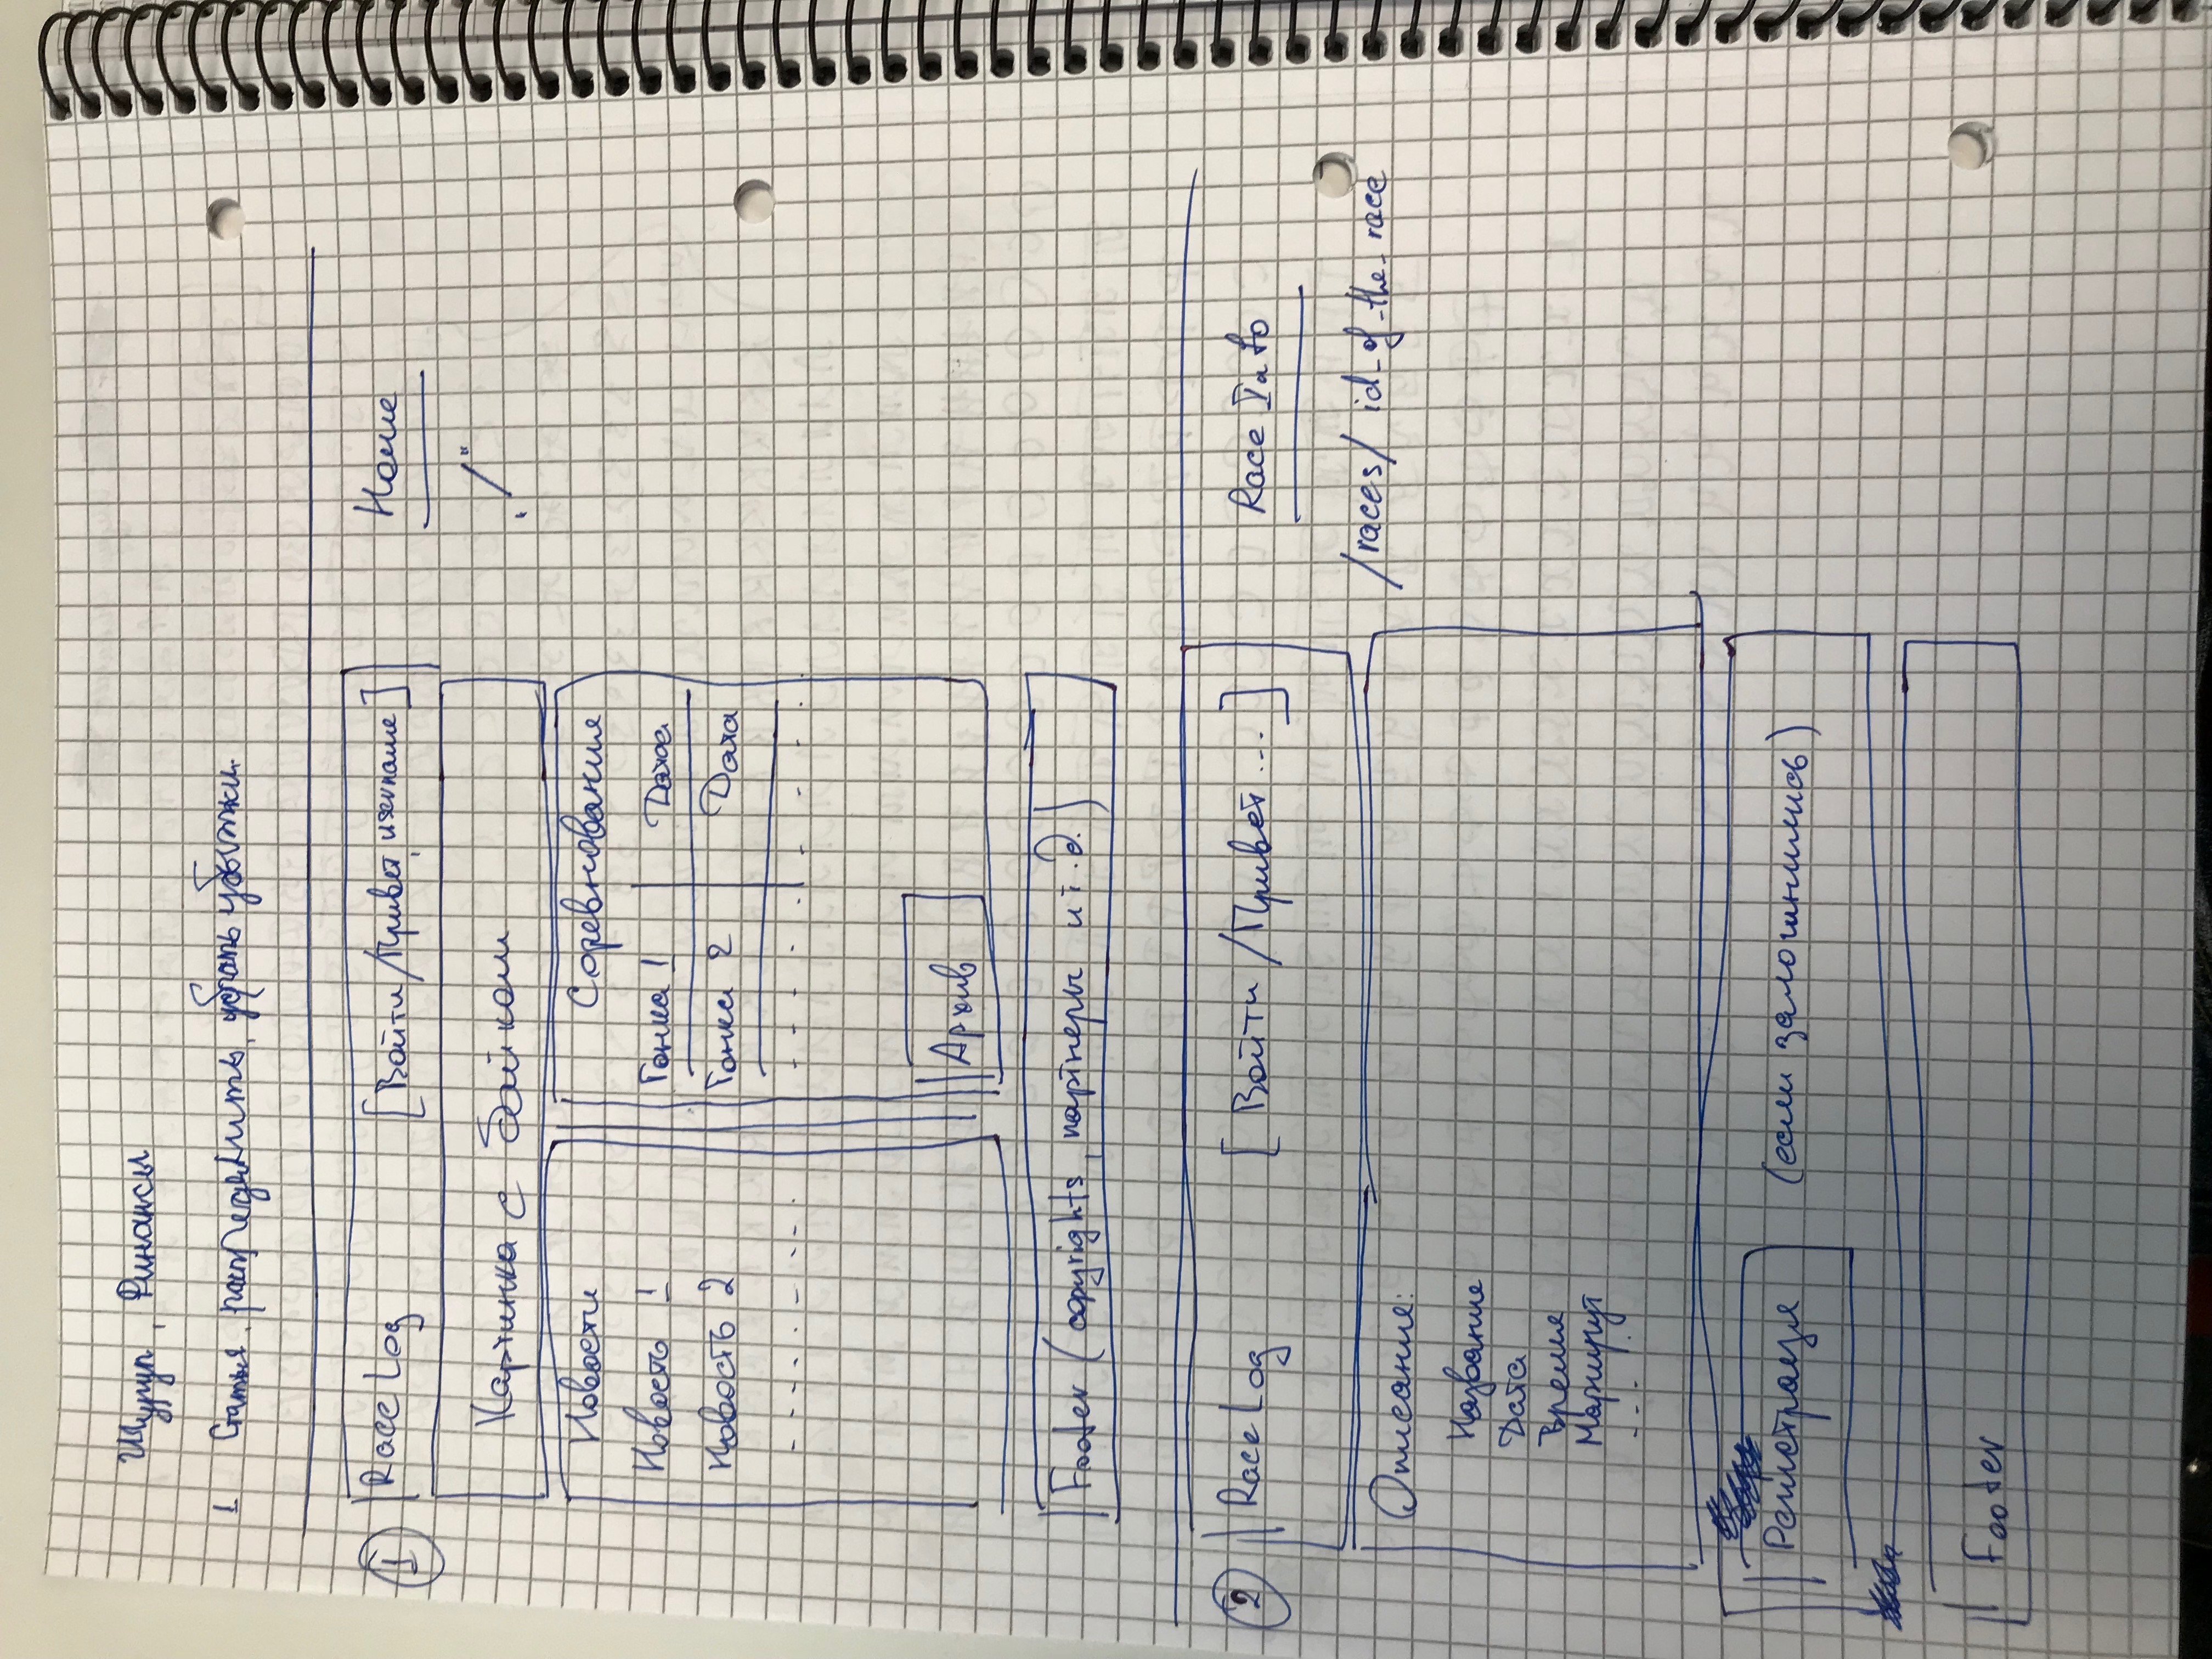 Шуруп, Финансы
1 Статья, распределить, убрать убытки.
1 Race Log [Войти/Привет, username] Home
Картинка с байком „/“
Новости Соревнования
Новость 1 Гонка 1 Дата
Новость 2 Гонка 2 Дата
Архив
Footer (copyrights, партнеры и т.д.)
2 Race Log [Войти/Привет...] Race Info
/races/id_of_the_race
Описание:
Название
Дата
Время
Маршрут
...
Регистрация (если залогинились)
Footer